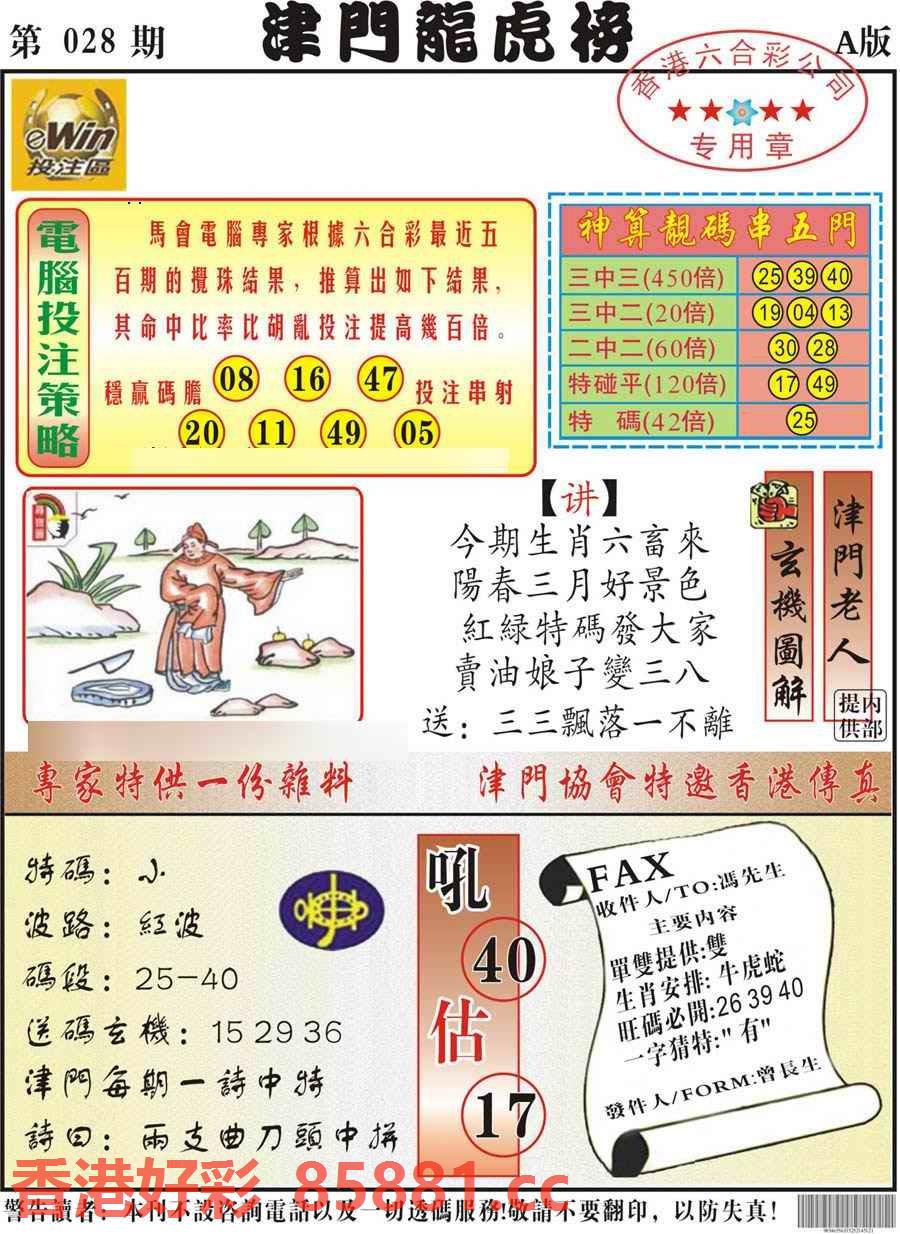 第 028 期
津門龍虎榜
A版
香港六合彩公司
专用章
eWin
投注區
電腦投注策略
馬會電腦專家根據六合彩最近五
百期的攪珠結果，推算出如下結果，
其命中比率比胡亂投注提高幾百倍。
穩贏碼膽 08 16 47 投注串射
20 11 49 05
神算靚碼串五門
三中三(450倍) 25 39 40
三中二(20倍) 19 04 13
二中二(60倍) 30 28
特碰平(120倍) 17 49
特 碼(42倍) 25
【讲】
今期生肖六畜來
陽春三月好景色
紅緑特碼發大家
賣油娘子變三八
送：三三飄落一不離
玄機圖解
津門老人
内部提供
專家特供一份雜料
津門協會特邀香港傳真
特碼：小
波路：紅波
碼段：25－40
送碼玄機：15 29 36
津門每期一詩中特
詩曰：兩支曲刀頭中拼
吼
40
估
17
FAX
收件人/TO:馮先生
主要内容
單雙提供:雙
生肖安排:牛虎蛇
旺碼必開:26 39 40
一字猜特:"有"
發件人/FORM:曾長生
香港好彩 85881.cc
警告讀者：本刊不設咨詢電話以及一切透碼服務!敬請不要翻印，以防失真！